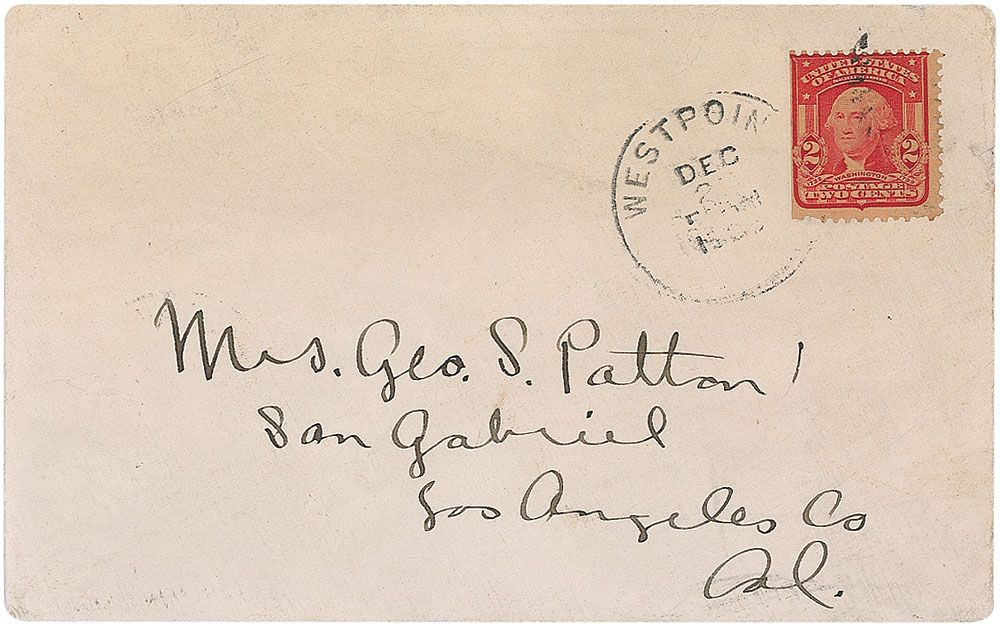 WEST POIN
DEC
UNITED STATES
OF AMERICA
2 2
WASHINGTON
POSTAGE
TWO CENTS
Mrs. Geo. S. Patton
San Gabriel
Los Angeles Co
Cal.